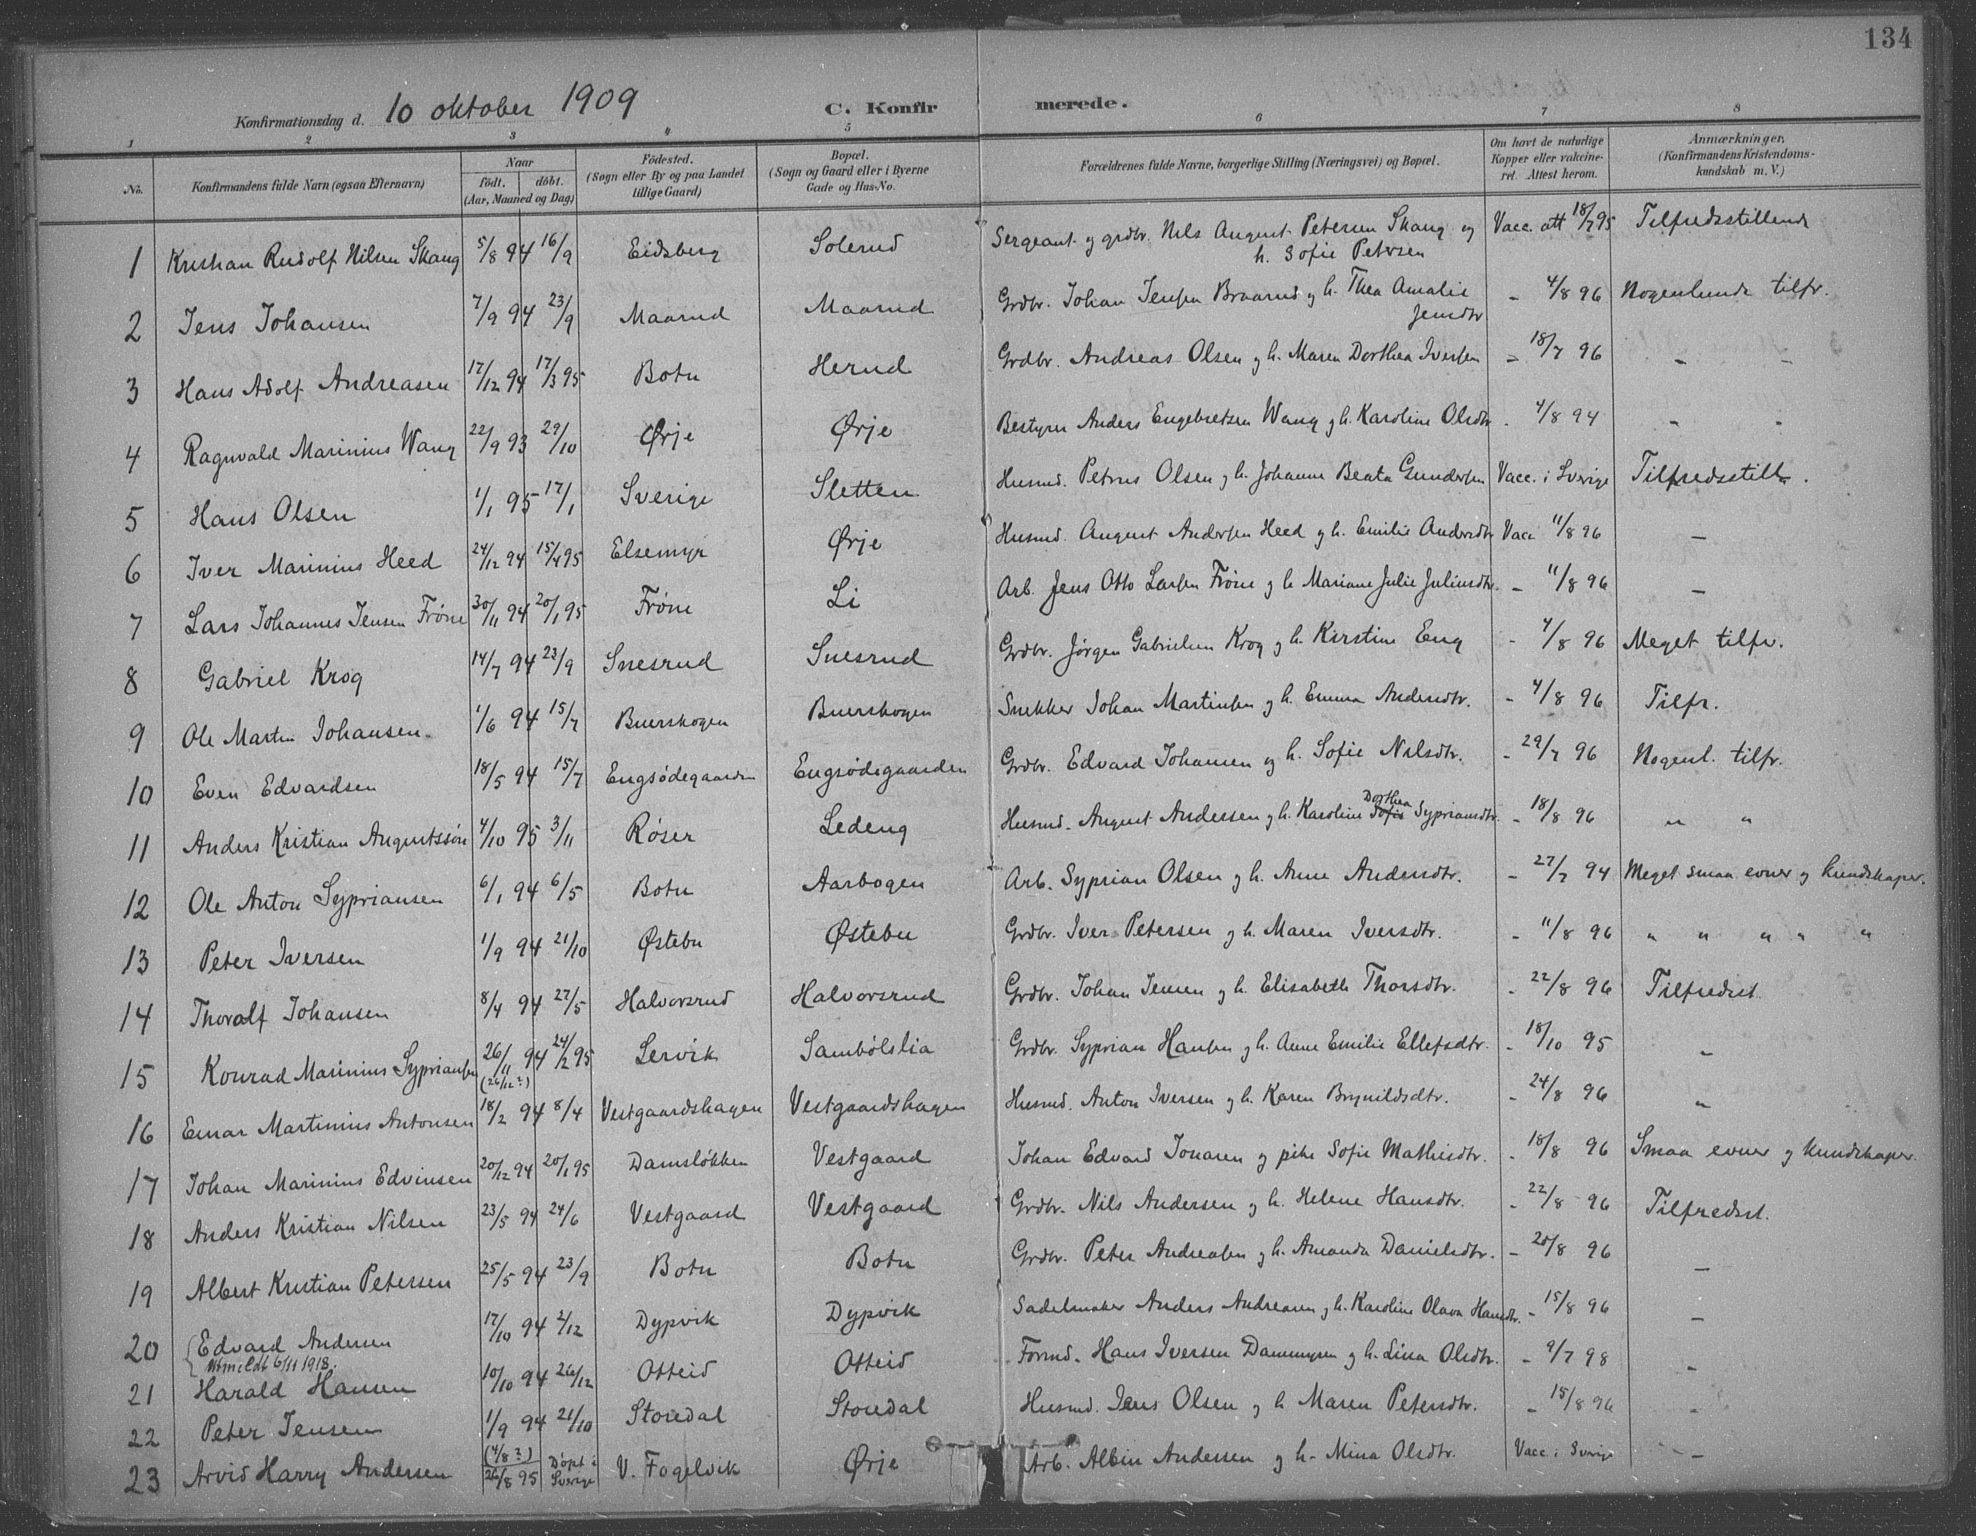 134
Konfirmationsdag d. 10 oktober 1909
C. Konfirmerede.
1 2 3 4 5 6 7 8
No. Konfirmandens fulde Navn (ogsaa Efternavn) Naar født. døbt. (Aar, Maaned og Dag) Fødested. (Sogn eller By og paa Landet tillige Gaard) Bopæl. (Sogn og Gaard eller i Byerne Gade og Hus-No. Forældrenes fulde Navne, borgerlige Stilling (Næringsvei) og Bopæl. Om havt de naturlige Kopper eller vakcineret. Attest herom. Anmærkninger, (Konfirmandens Kristendomskundskab m. V.)
1 Kristian Rudolf Nilsen Skang 5/8 94 16/9 Eidsberg Solerud Sergeant og grdbr. Nels August Petersen Skang og h. Sofie Petersen Vacc. att 18/7 95 Tilfredsstillende
2 Jens Johansen 7/9 94 23/9 Maarud Maarud Grdbr. Johan Jensen Braarud og h. Thea Amalie Jensdtr - 4/8 96 Nogenlunde tilfr.
3 Hans Adolf Andreasen 17/12 94 17/3 95 Botn Herud Grdbr. Andreas Olsen og h. Maren Dorthea Iversen - 18/7 96 - -
4 Ragnvald Marinius Wang 22/9 93 29/10 Ørje Ørje Bestyrer Anders Engebretsen Wang og h. Karoline Olsdtr - 4/8 94 - -
5 Hans Olsen 1/1 95 17/1 Sverige Sletten Husmd. Petrus Olsen og h. Johanne Beata Gundersen Vacc. i Sverige Tilfredsstill.
6 Iver Marinius Heed 24/12 94 15/4 95 Elsemyr Ørje Husmd. August Andersen Heed og h. Emilie Andersdtr Vacc 11/8 96 -
7 Lars Johannes Jensen Frøne 30/11 94 20/1 95 Frøne Li Arb. Jens Otto Larsen Frøne og h. Mariane Julie Juliusdtr. - 11/8 96 -
8 Gabriel Krog 14/7 94 23/9 Snesrud Snesrud Grdbr. Jørgen Gabrielsen Krog og h. Kirstine Eng - 4/8 96 Meget tilfr.
9 Ole Martin Johansen. 1/6 94 15/7 Buerskogen Buerskogen Snekker Johan Martinsen og h. Emma Andersdtr. - 4/8 96 Tilfr.
10 Even Edvardsen 18/5 94 15/7 Engsødegaarden Engsødegaarden Grdbr. Edvard Johansen og h. Sofie Nilsdtr. - 29/7 96 Nogenl. tilfr.
11 Anders Kristian Augustssøn 4/10 95 3/11 Røser Ledeng Husmd. August Andersen og h. Karoline Sofie Dorthea Sypriansdtr. - 18/8 96 " "
12 Ole Anton Sypriansen 6/1 94 6/5 Botn Aarbogen Arb. Syprian Olsen og h. Anne Andersdtr. - 27/7 94 Meget smaa evner og kundskaper.
13 Peter Iversen 1/9 94 21/10 Østebu Østebu Grdbr. Iver Petersen og h. Maren Iversdtr. - 11/8 96 " " " " "
14 Thoralf Johansen 8/4 94 27/5 Halvorsrud Halvorsrud Grdbr. Johan Jensen og h. Elisabeth Thorsdtr. - 22/8 96 Tilfredsst.
15 Konrad Marinius Sypriansen 26/11 94 (26/12?) 24/2 95 Lervik Sambølslia Grdbr. Syprian Hansen og h. Anne Emilie Ellefsdtr. - 18/10 95 "
16 Einar Martinius Antonsen 18/2 94 8/4 Vestgaardshagen Vestgaardshagen Husmd. Anton Iversen og h. Karen Brynildsdtr. - 24/8 96 "
17 Johan Marinius Edvinsen 20/12 94 20/1 95 Damsløkken Vestgaard Johan Edvard Jonasen og pike Sofie Mathisdtr. - 18/8 96 Smaa evner og kundskaper.
18 Anders Kristian Nilsen 23/5 94 24/6 Vestgaard Vestgaard Grdbr. Nils Andersen og h. Helene Hansdtr. - 22/8 96 Tilfredsst.
19 Albert Kristian Petersen 25/5 94 23/9 Botn Botn Grdbr. Peter Andreasen og h. Amanda Danielsdtr. - 20/8 96 -
20 Edvard Andersen 17/10 94 2/12 Dypvik Dypvik Sadelmaker Anders Andreasen og h. Karoline Olava Hansdtr. - 15/8 96 -
Utmeldt 6/11 1918.
21 Harald Hansen 10/10 94 26/12 Otteid Otteid Formd. Hans Iversen Dammyren og h. Lina Olsdtr. - 9/7 98 -
22 Peter Jensen 1/9 94 21/10 Storedal Storedal Husmd. Jens Olsen og h. Maren Petersdtr. - 15/8 96 -
23 Arvid Harry Andersen (4/8?) 26/8 95 Døpt i Sverige V. Fogelvik Ørje Arb. Albin Andersen og h. Mina Olsdtr. Vacc. i Sverige -